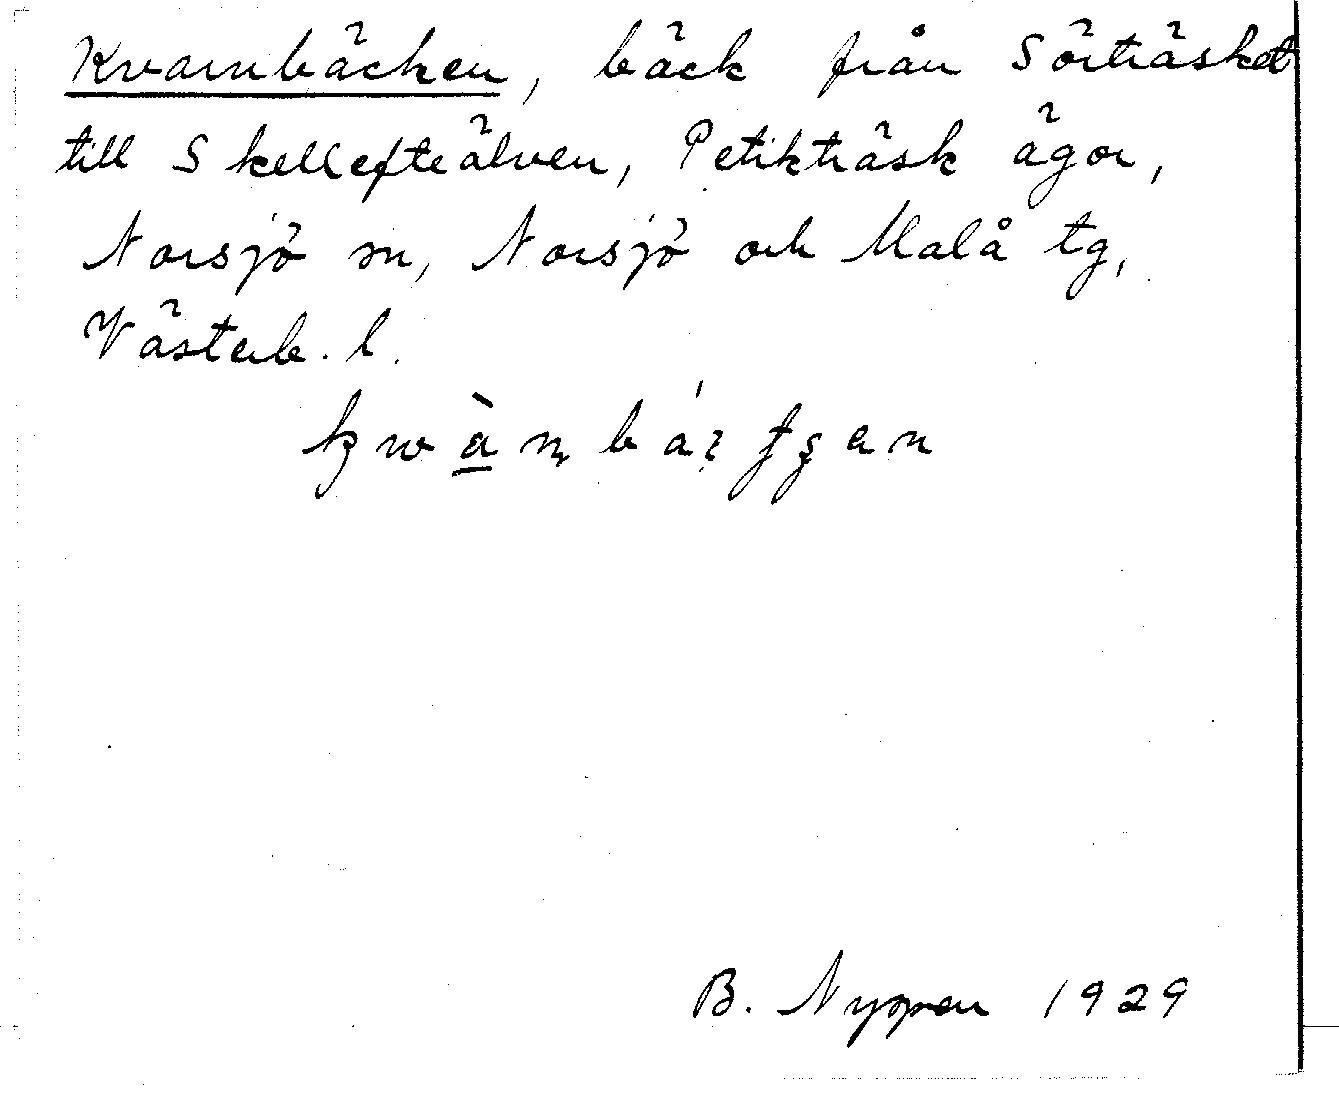 Kvarnbäcken, bäck från Sörträsket
till Skellefteälven, Petikträsk ägor,
Norsjö sn, Norsjö och Malå tg,
Västerb. l.
B. Nyman 1929